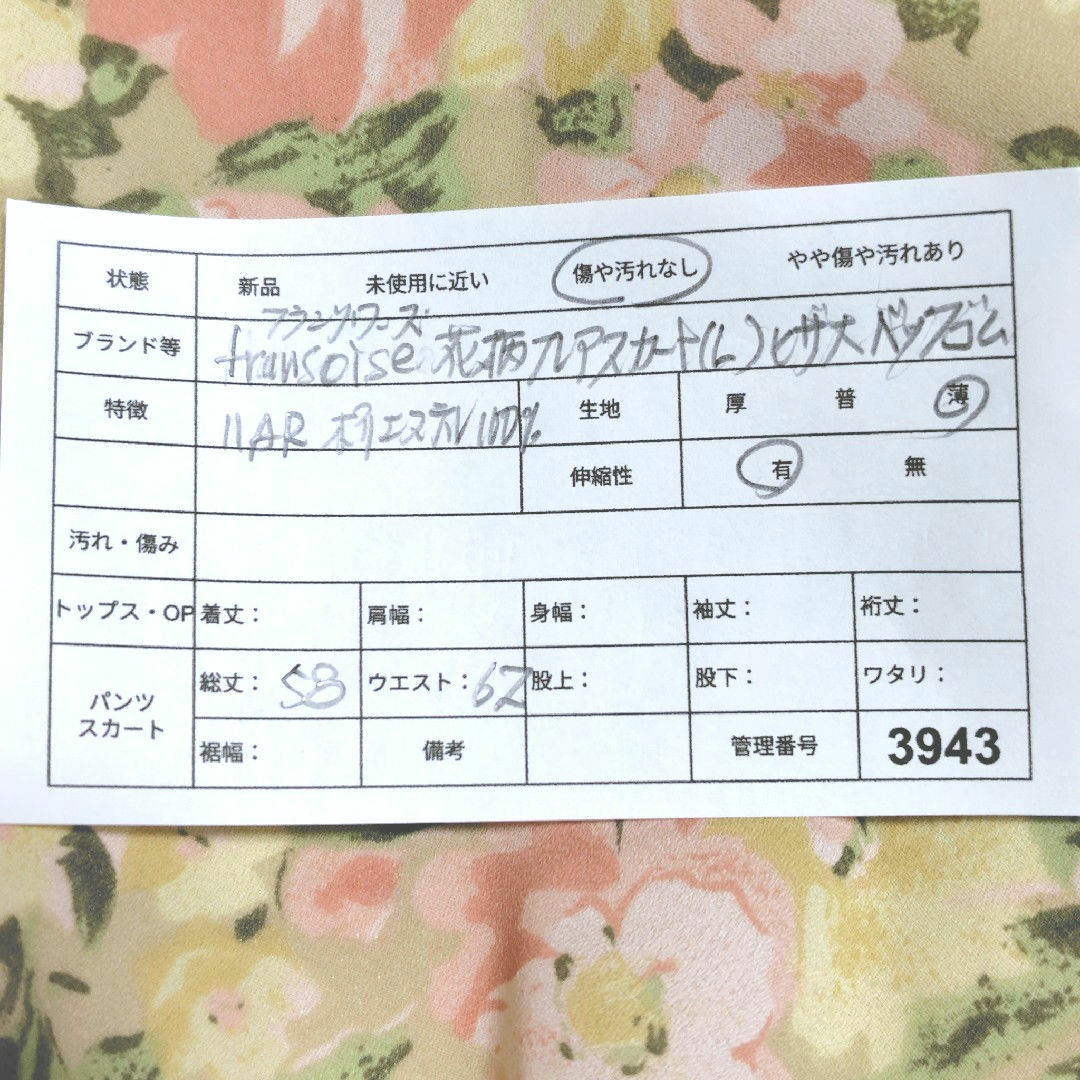 状態 新品 未使用に近い 傷や汚れなし やや傷や汚れあり
フランソワーズ
ブランド等 fransoise 花柄 フレアスカート(L) ヒザ丈 バックゴム
特徴 11AR ポリエステル100% 生地 厚 普 薄
伸縮性 有 無
汚れ・傷み
トップス・OP 着丈： 肩幅： 身幅： 袖丈： 裄丈：
パンツ スカート 総丈： 58 ウエスト： 62 股上： 股下： ワタリ：
裾幅： 備考 管理番号 3943